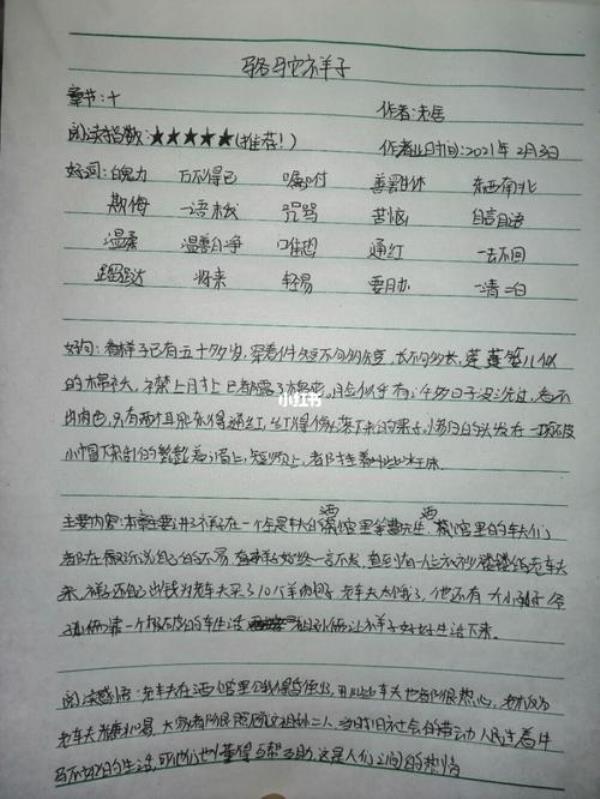 骆驼祥子
章节:十 作者:老舍
阅读指数:★★★★★(推荐!) 作者业时间:2021年2月3日
好词:魄力 万不得已 嘱咐 善罢甘休 东西南北
欺侮 一语 咒骂 苦恼 自言自语
温柔 温善 唯恐 通红 一去不回
蹓跶 将来 轻易 要办 一清二白
好句:看样子已有五十多岁,穿着件短不够短,长不够长,莲蓬篓儿似
的棉袄,襟上肘上已都露了棉花。脸似乎有许多日子没洗过,看不
出肉色,只有两个耳朵冻得通红,红得像要落下来的果子,惨白的头发在一顶破
小帽下杂乱的髭髭着;眉上,短须上,都挂着些冰珠。
小红书
主要内容:本章主要讲了祥子在一个车夫的茶馆里等曹先生,茶馆里的车夫们
都在诉说自己的不易,祥子始终一言不发,直到有一位衣衫褴褛的老车夫
来,祥子还自己出钱为老车夫买了10个羊肉包子,老车夫太饿了,他还有一个小孙子,爷
孙俩靠一个极破的车生活,祖孙俩让祥子好好生活下来。
酒 酒
阅读感悟:老车夫在酒馆里饿得昏倒,那些车夫也都很热心,
老车夫,大家都很照顾这祖孙二人,当时旧社会的劳动人民过着牛
马不如的生活,可他们也懂得互帮互助,这是人们之间的热情